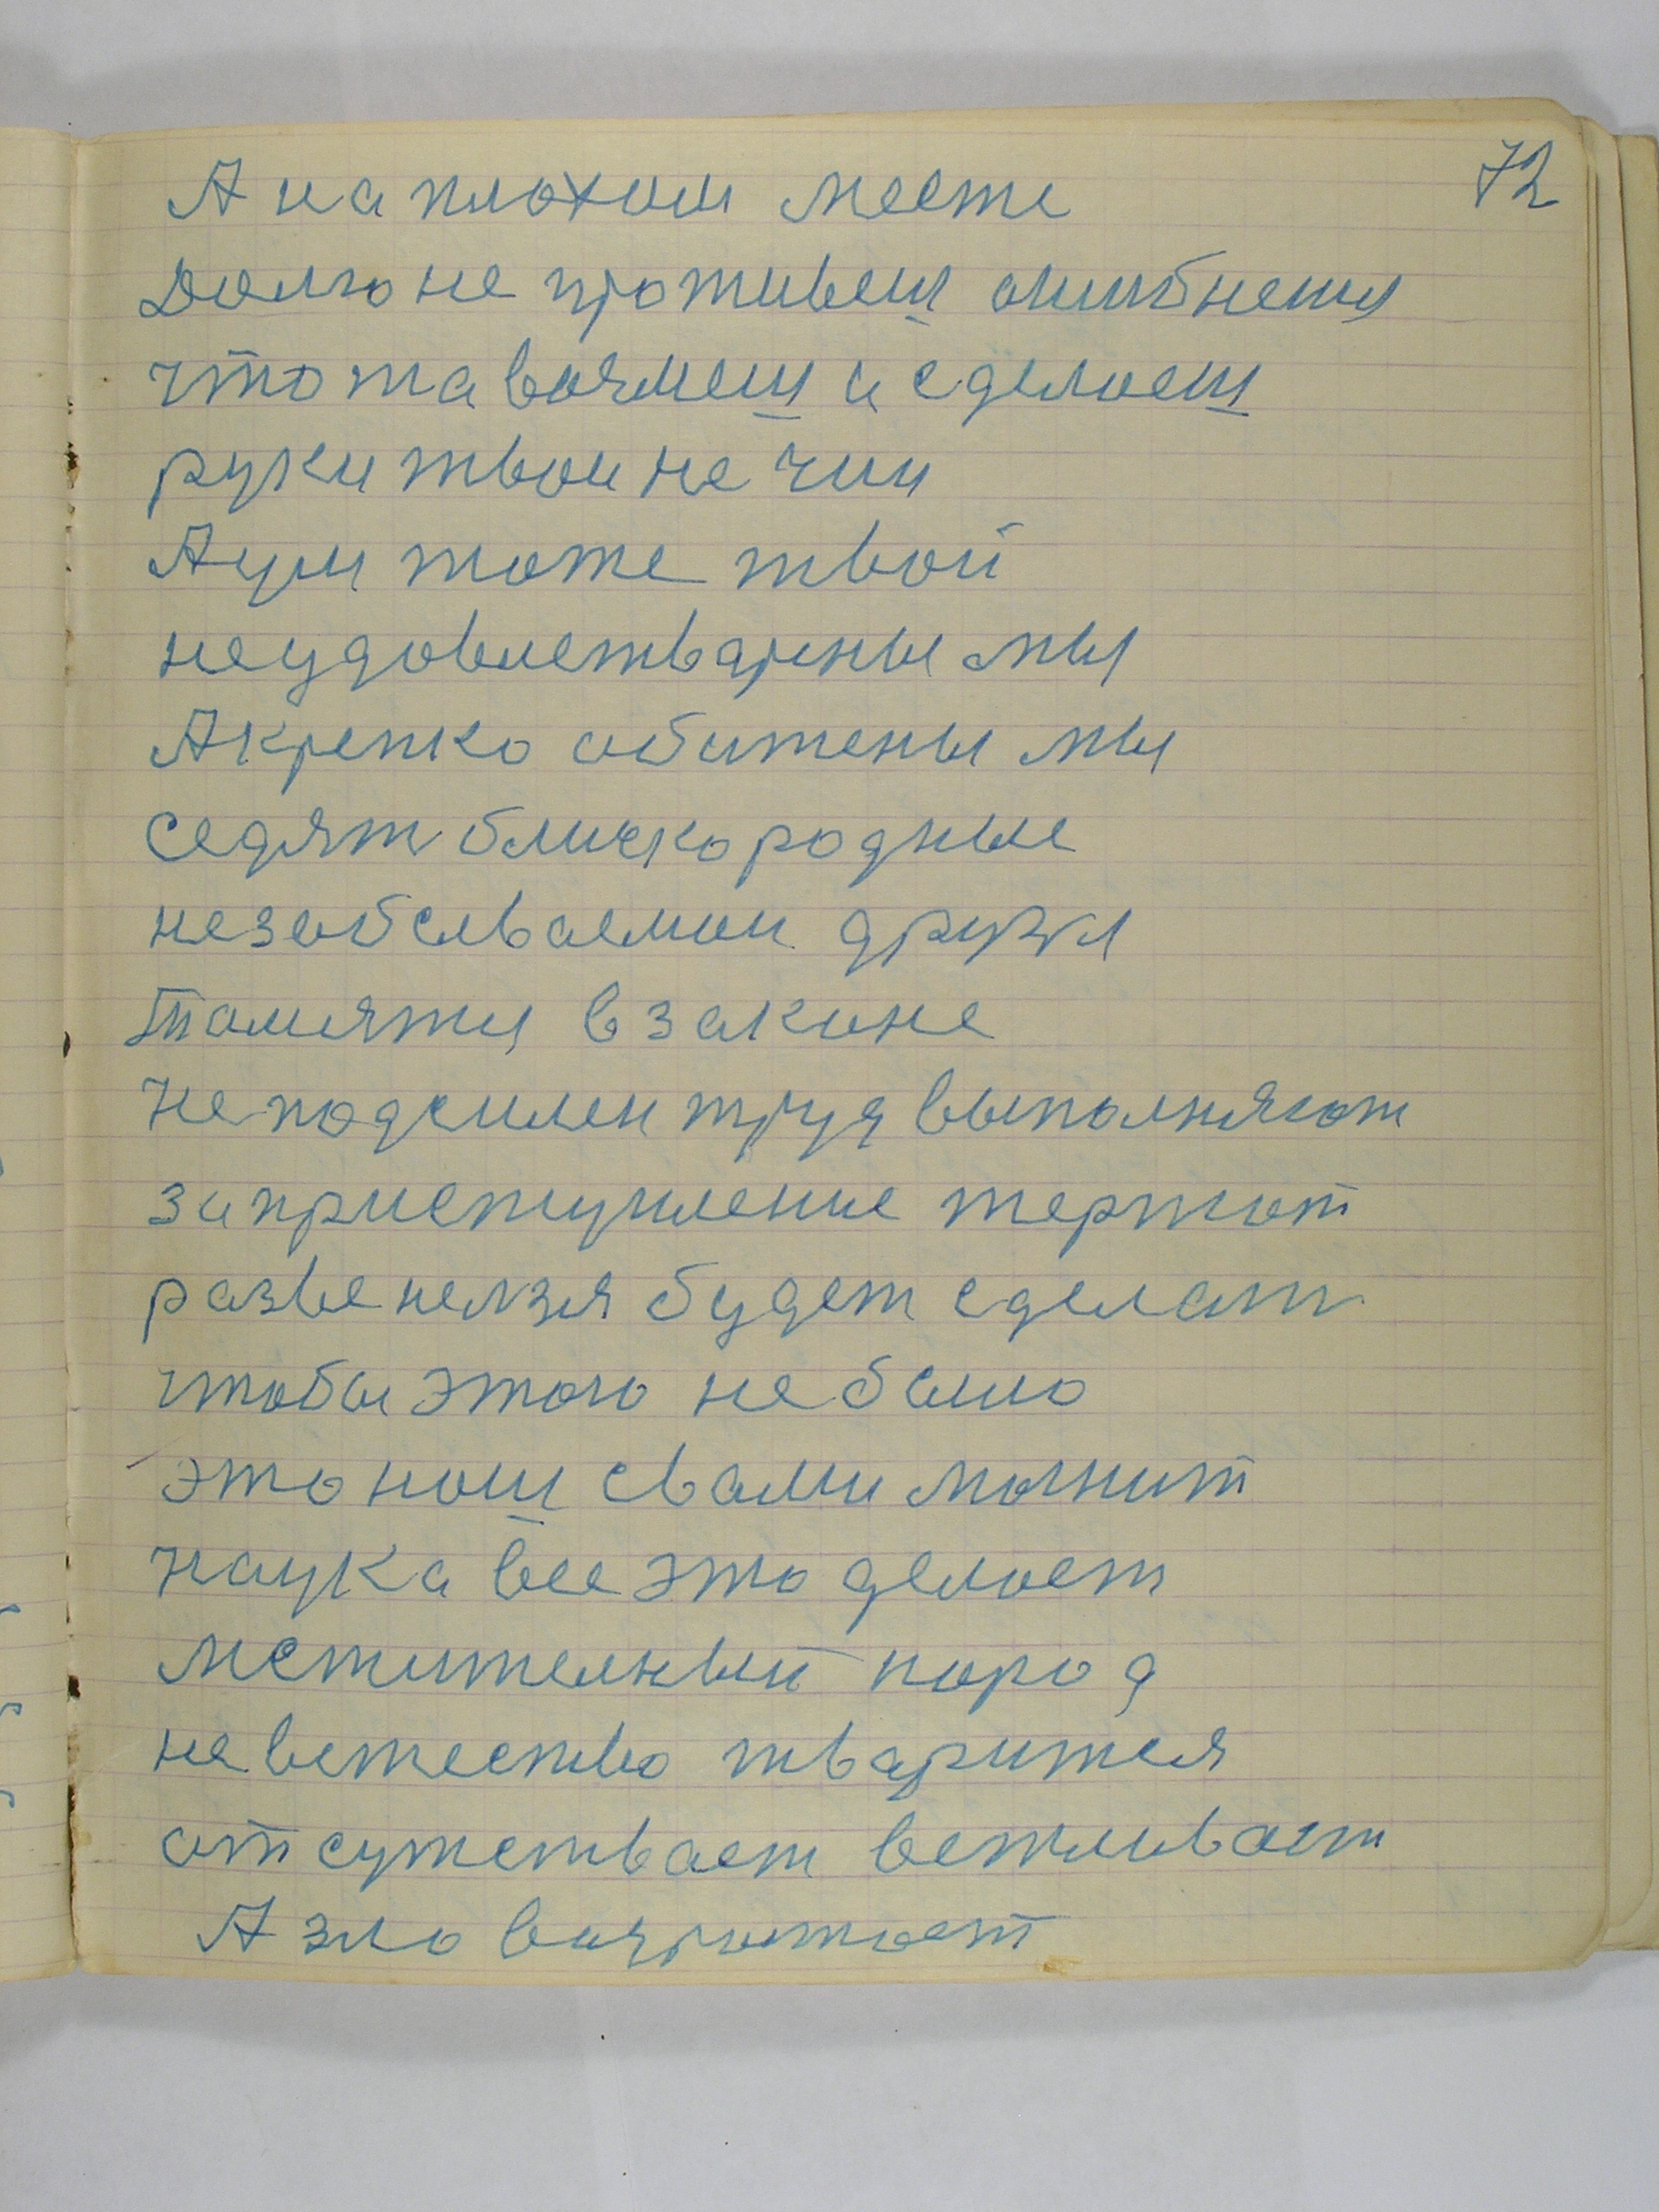 72
А на плохом месте
Долго не проживеш ошибнешя
что та возмеш и сделоеш
руки твои не чии
А ум тоже твой
неудовлетварены мы
А крепко обижены мы
седят блиско родные
незобеваемои друзя
томятя в законе
Не подсилен труд выполняют
за приступление держют
разве нелзя будет сделать
чтобы этого не было
это нош свами могнит
наука все это делоет
мстителный народ
невежество тваритоя
отсутствает вежливает
А зло возрожоет